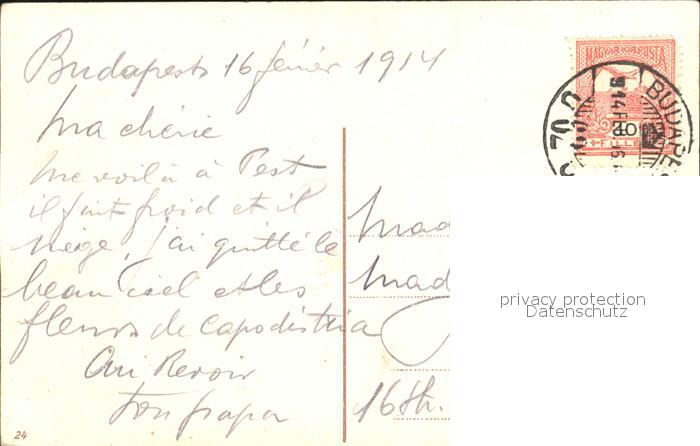 Budapest 16 février 1914
MAGYAR KIR. POSTA
BUDAPE
914 F
Ma chérie
me voilà à Pest
il fait froid et il
neige, j'ai quitté le
beau ciel et les
fleurs de Capodistria
Au Revoir
Ton papa
Mad
Mad
16 Str.
privacy protection
Datenschutz
24